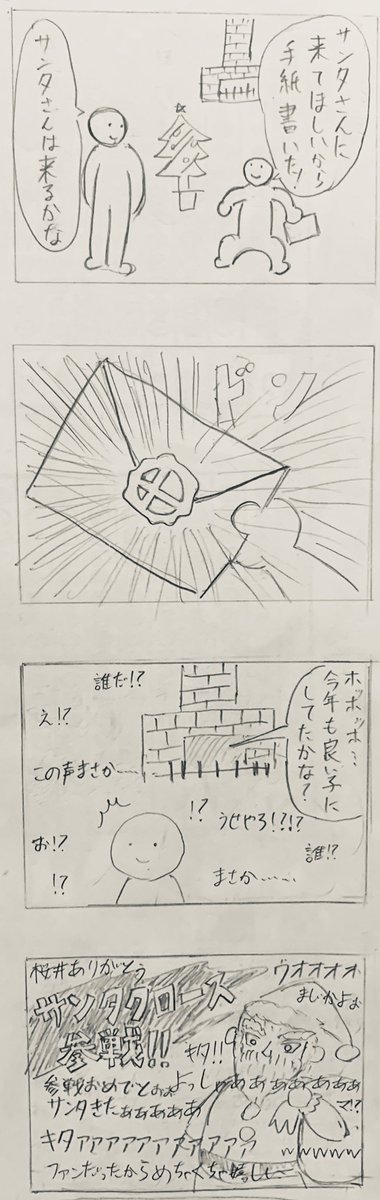 サンタさんに
来てほしいから
手紙書いた!
サンタさんは来るかな
ドン
ホッホッホ…
今年も良い子に
してたかな?
誰だ!?
え!?
この声まさか……
!?
うせやろ!?!?
お!?
誰!?
!?
まさか……
桜井ありがとう
ウオオオオ
まじかよぉ
サンタクロース
参戦!!
キタ!!
参戦おめでとぉぉ
よっしゃあぁぁぁぁぁぁぁ
サンタきたぁぁぁぁぁ
マ!?
キタアァァァァァァァァァ
wwwww
ファンだったからめちゃくちゃ嬉しい